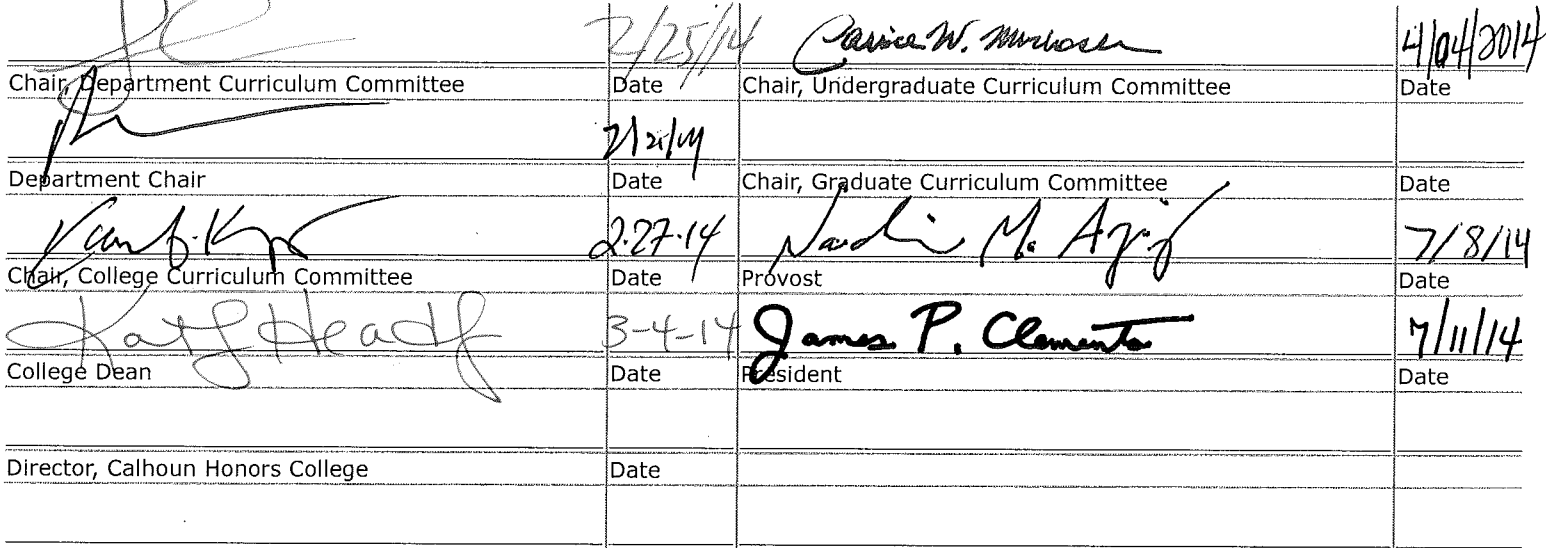 2/25/14 4/04/2014
Chair, Department Curriculum Committee Date Chair, Undergraduate Curriculum Committee Date
Department Chair Date Chair, Graduate Curriculum Committee Date
2-27-14 7/8/14
Chair, College Curriculum Committee Date Provost Date
3-4-14 James P. Clements 7/11/14
College Dean Date President Date
Director, Calhoun Honors College Date